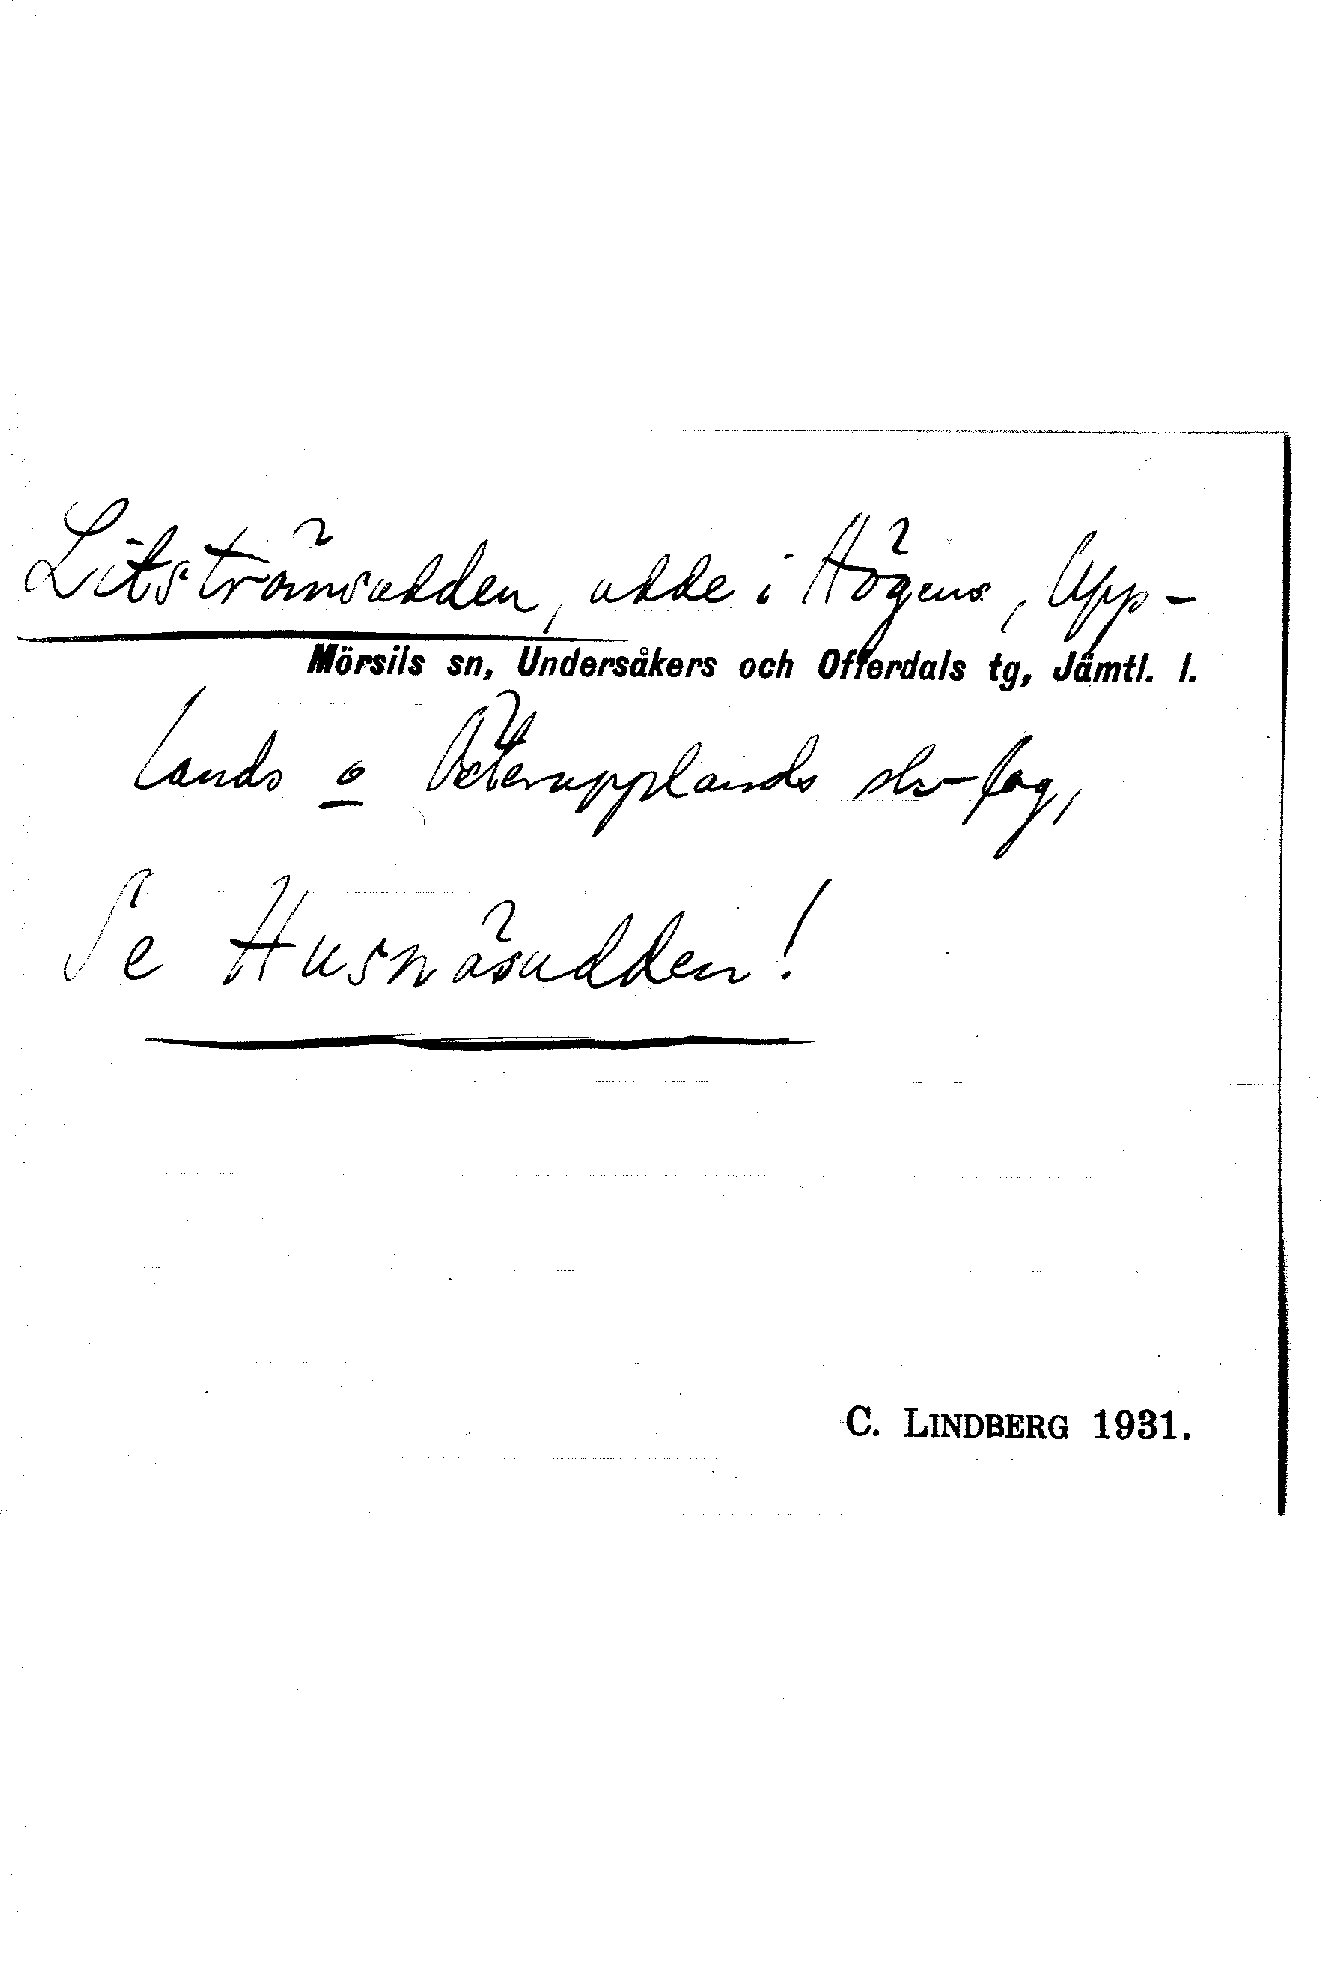 Litströmsudden, udde i Högens, Upp-
Mörsils sn, Undersåkers och Offerdals tg, Jämtl. l.
lands o Österupplands skv-lag,
Se Husnäsudden!
C. LINDBERG 1931.